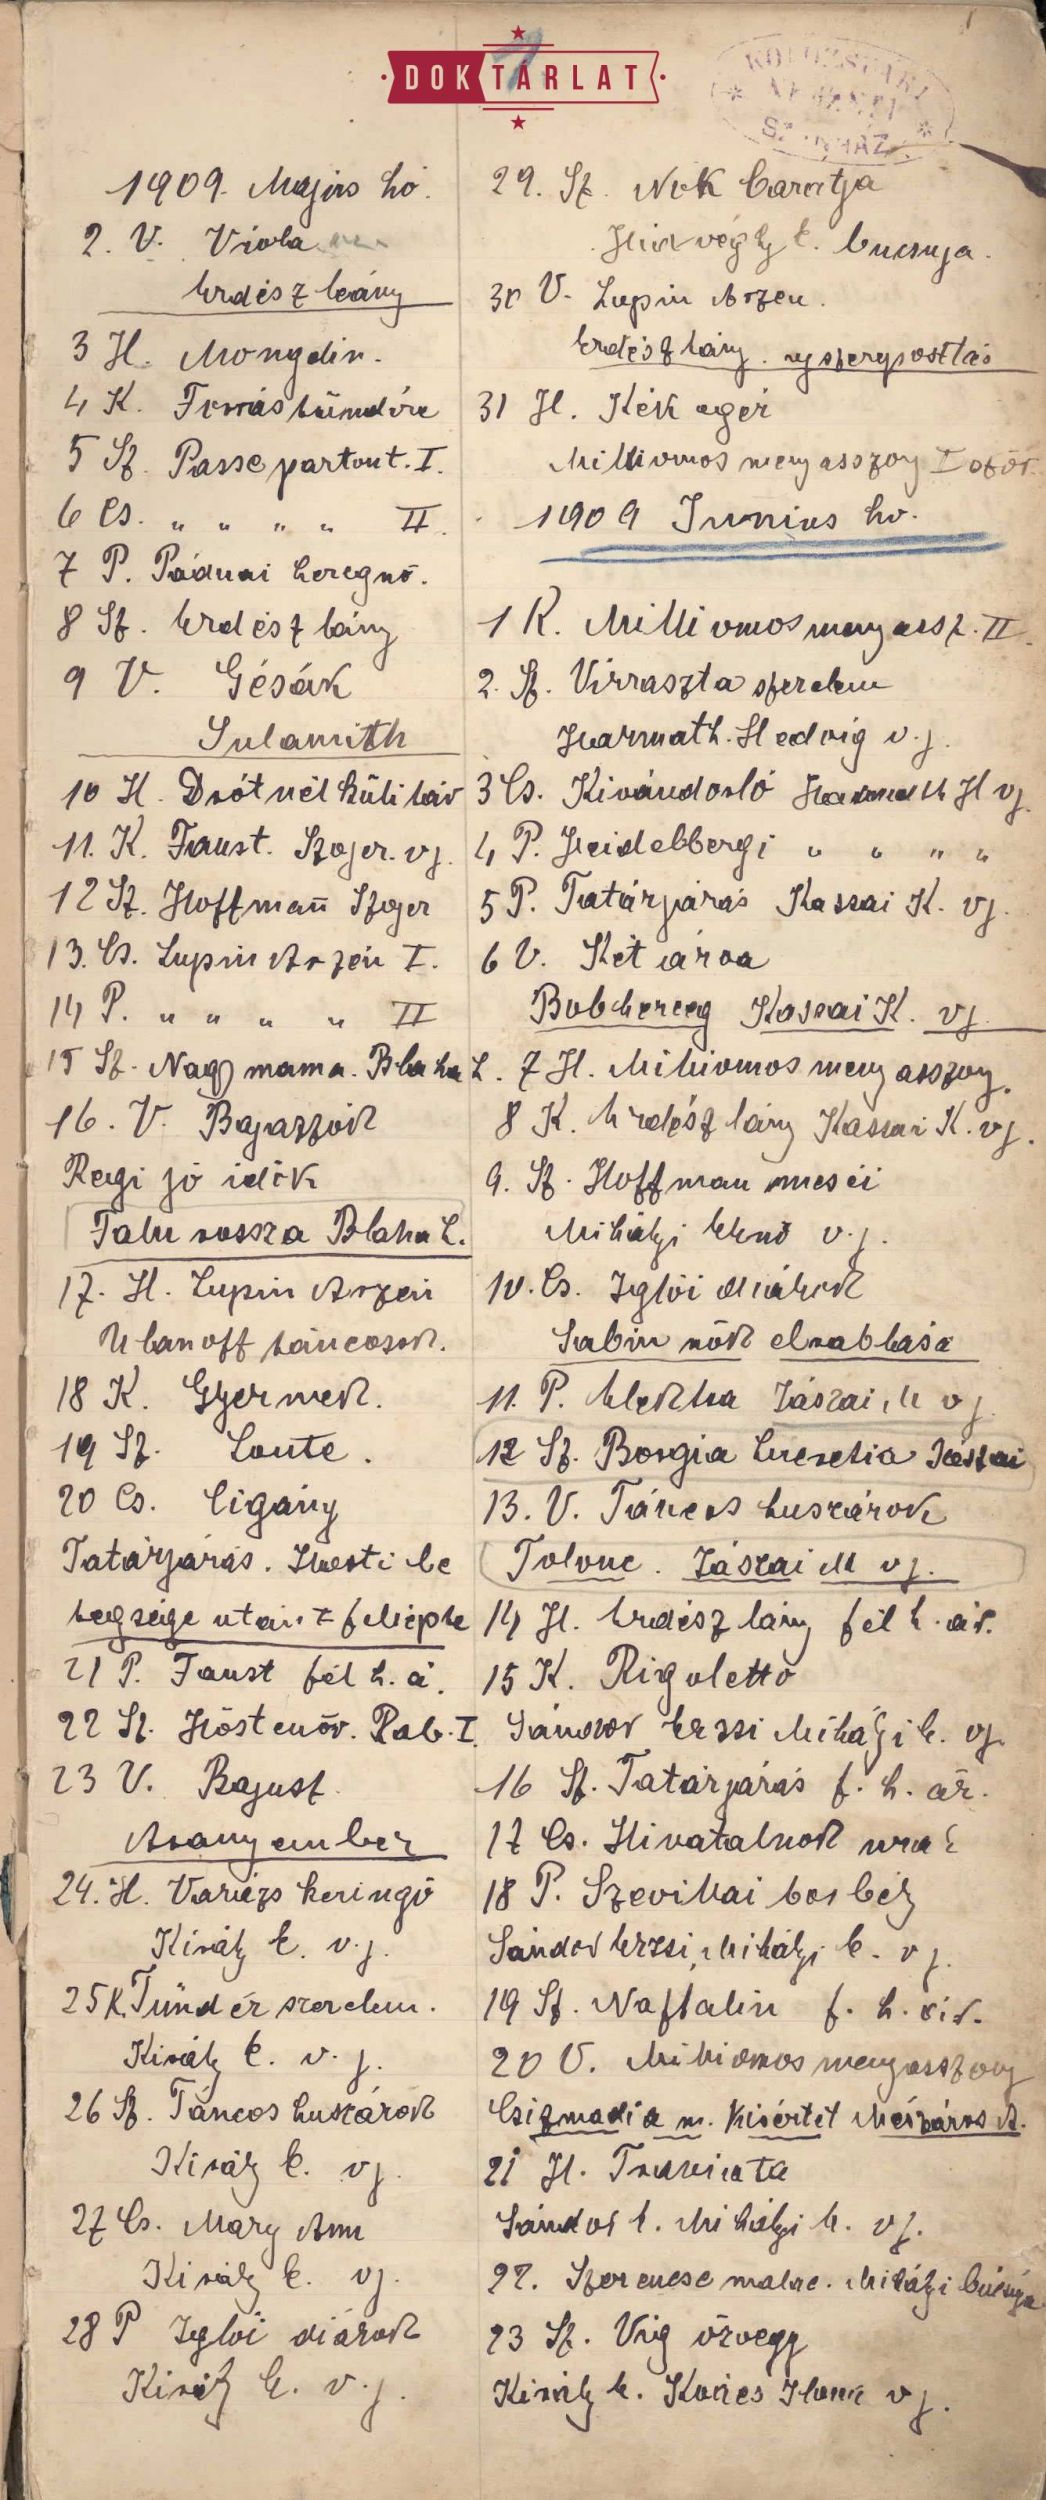 DOKTÁRLAT
KOLOZSVÁRI
NEMZETI
SZINHÁZ
1909. Május hó.
2. V. Viola
Erdész leány
3 H. Mongdin.
4 K. Forrás tündére
5 Sz. Passe partout. I.
6 Cs. " " " " II.
7 P. Páduai hercegnő.
8 Sz. Erdész lány
9 V. Gésák
Sulamith
10 H. Drótnélküli táv
11. K. Faust. Szoyer. vj.
12 Sz. Hoffmann Szoyer
13. Cs. Lupin Arzén I.
14 P. " " " " II
15 Sz. Nagymama. Blaha L.
16. V. Bajazzók
Regi jó idők
Falu rossza Blaha L.
17. H. Lupin Arzén
Urbanoff táncosok.
18 K. Gyermek.
19 Sz. Loute.
20 Cs. Cigány
Tatárjárás. Ihosti be
tegsége után fellépte
21 P. Faust fél h. á.
22 Sz. Hőstenőr. Rab. I.
23 V. Bajusz
Aranyember
24. H. Varázs keringő
Király E. v. j.
25 K. Tündérszerelem.
Király E. v. j.
26 Sz. Táncos huszárok
Király E. vj.
27 Cs. Mary Ann
Király E. vj.
28 P Iglói diákok
Király E. v. j.
29. Sz. Nők barátja
Hidvéghy E. bucsuja.
30 V. Lupin Arzen.
Erdészlány.
31 H. Kék egér
Milliomos menyasszony I ször
1909 Junius hó.
1 K. Milliomos menyassz. II.
2. Sz. Virrasztó szerelem
Harmath. Hedvig v. j.
3 Cs. Kivándorló Harmath H vj.
4 P. Heidelbergi " " " "
5 P. Tatárjárás Kassai K. vj.
6 V. Két árva
Bob herceg Kassai K. vj.
7 H. Milliomos menyasszony.
8 K. Erdész lány Kassai K. vj.
9. Sz. Hoffman meséi
Mihályi Ernő v. j.
10. Cs. Iglói diákok
Sabin nők elrablása
11. P. Elektra Jászai M vj
12 Sz. Borgia Lucretia Jászai
13. V. Táncos huszárok
Tolonc. Jászai M vj.
14 H. Erdész lány fél h. ár.
15 K. Rigoletto
Sándor Erzsi Mihályi E. vj.
16 Sz. Tatárjárás f. h. ár.
17 Cs. Hivatalnok urak
18 P. Szevillai borbély
Sándor Erzsi, Mihályi E. vj.
19 Sz. Naftalin f. h. ár.
20 V. Milliomos menyasszony
Csizmadia m. kisértet Mészáros A.
21 H. Traviata
Sándor E. Mihályi E. vj.
22. Szerencse malac. Mihályi búcsúja
23 Sz. Vig özvegy
Király E. Kovács Ilona vj.